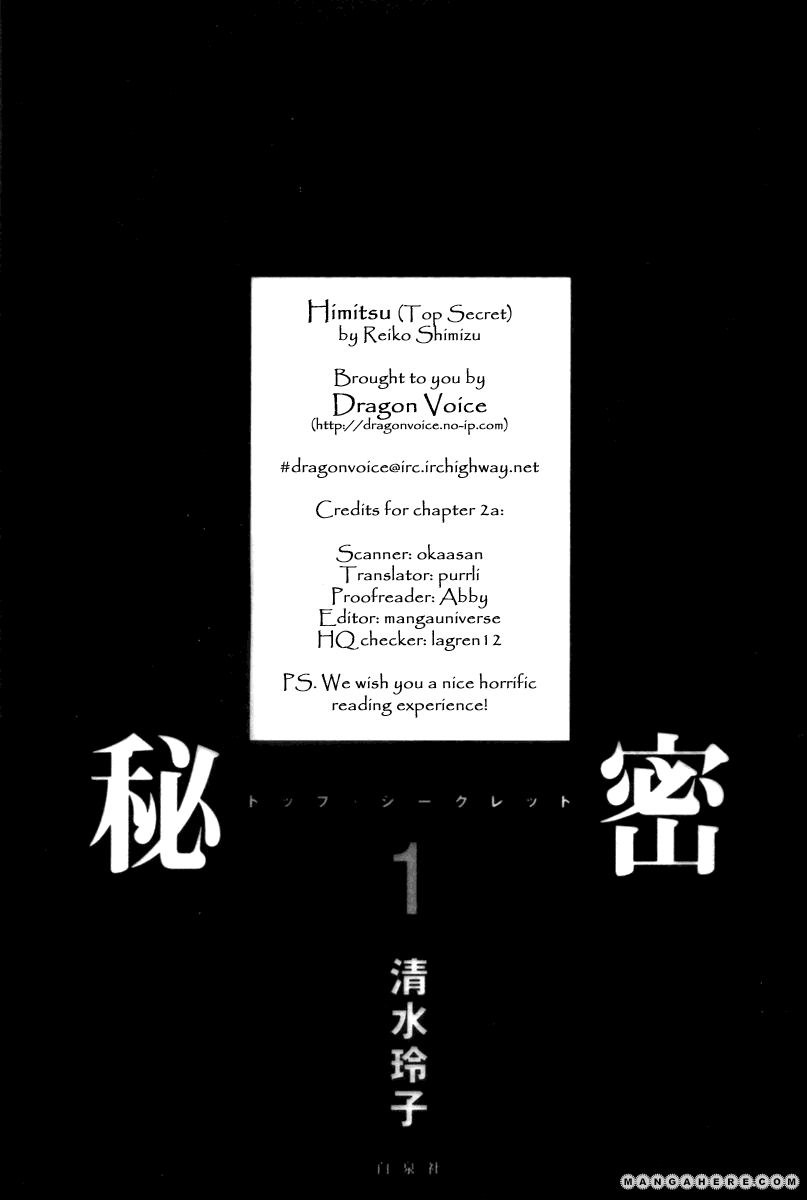 Himitsu (Top Secret)
by Reiko Shimizu
Brought to you by
Dragon Voice
(http://dragonvoice.no-ip.com)
#dragonvoice@irc.irchighway.net
Credits for chapter 2a:
Scanner: okaasan
Translator: purrli
Proofreader: Abby
Editor: mangauniverse
HQ checker: lagren12
PS. We wish you a nice horrific
reading experience!
秘密
トップ・シークレット
1
清水玲子
白泉社
MANGAHERE.COM